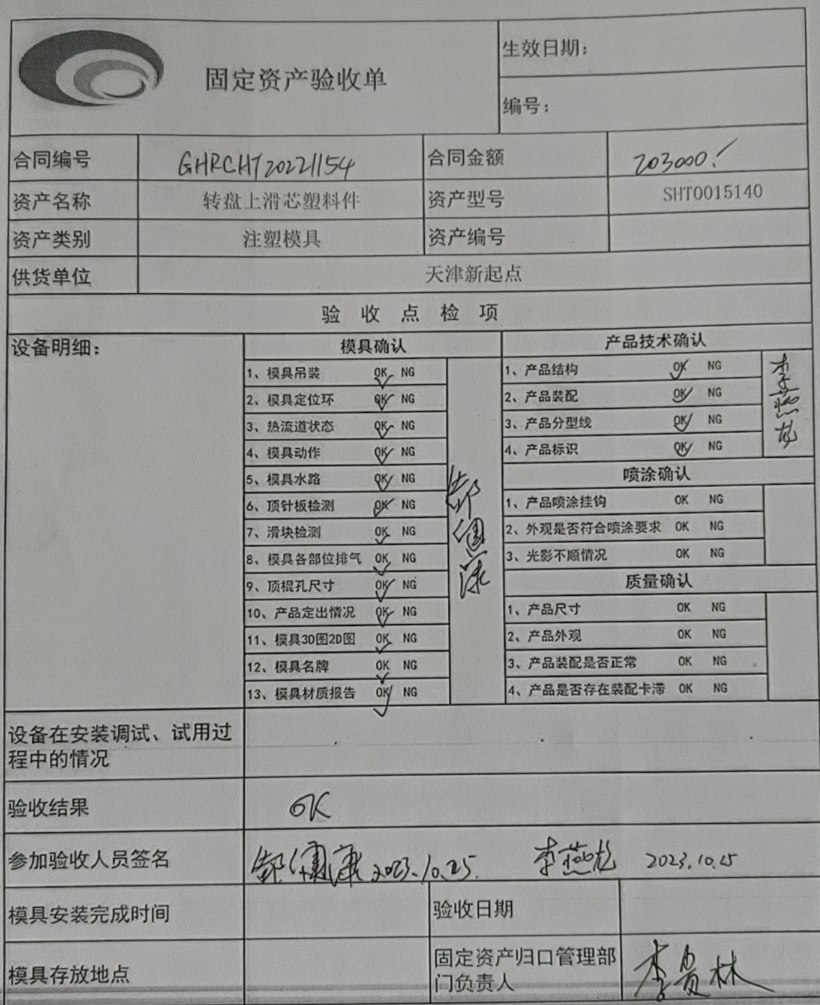 固定资产验收单
生效日期：
编号：
合同编号 GHRCHT20221154 合同金额 203000.
资产名称 转盘上滑芯塑料件 资产型号 SHT0015140
资产类别 注塑模具 资产编号
供货单位 天津新起点
验收点检项
设备明细：
模具确认
1、模具吊装 OK NG
2、模具定位环 OK NG
3、热流道状态 OK NG
4、模具动作 OK NG
5、模具水路 OK NG
6、顶针板检测 OK NG
7、滑块检测 OK NG
8、模具各部位排气 OK NG
9、顶棍孔尺寸 OK NG
10、产品定出情况 OK NG
11、模具3D图2D图 OK NG
12、模具名牌 OK NG
13、模具材质报告 OK NG
产品技术确认
1、产品结构 OK NG
2、产品装配 OK NG
3、产品分型线 OK NG
4、产品标识 OK NG
李燕龙
喷涂确认
1、产品喷涂挂钩 OK NG
2、外观是否符合喷涂要求 OK NG
3、光影不顺情况 OK NG
质量确认
1、产品尺寸 OK NG
2、产品外观 OK NG
3、产品装配是否正常 OK NG
4、产品是否存在装配卡滞 OK NG
设备在安装调试、试用过
程中的情况
验收结果 OK
参加验收人员签名 健康 2023.10.25. 李燕龙 2023.10.25
模具安装完成时间 验收日期
模具存放地点 固定资产归口管理部
门负责人 李贵林